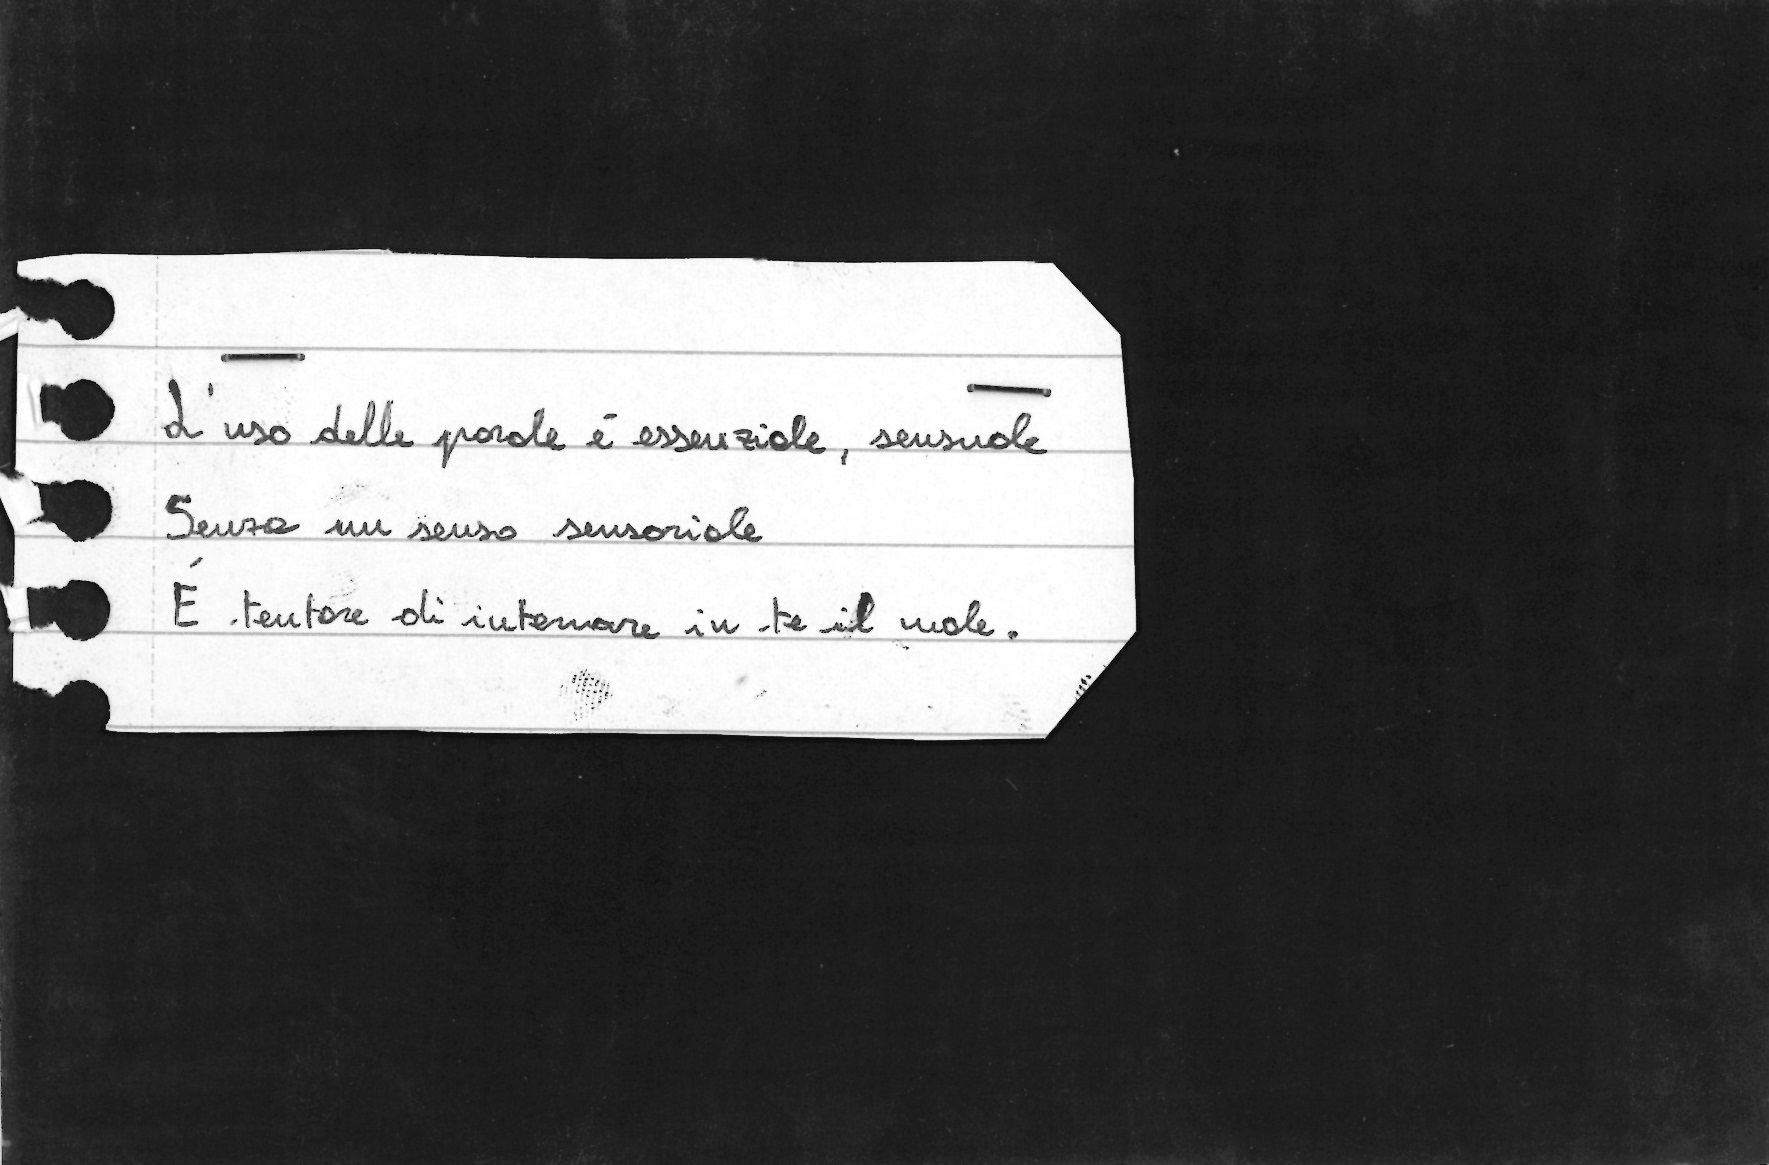 L'uso delle parole é essenziale, sensuale
Senza un senso sensoriale
É tentare di internare in te il male.